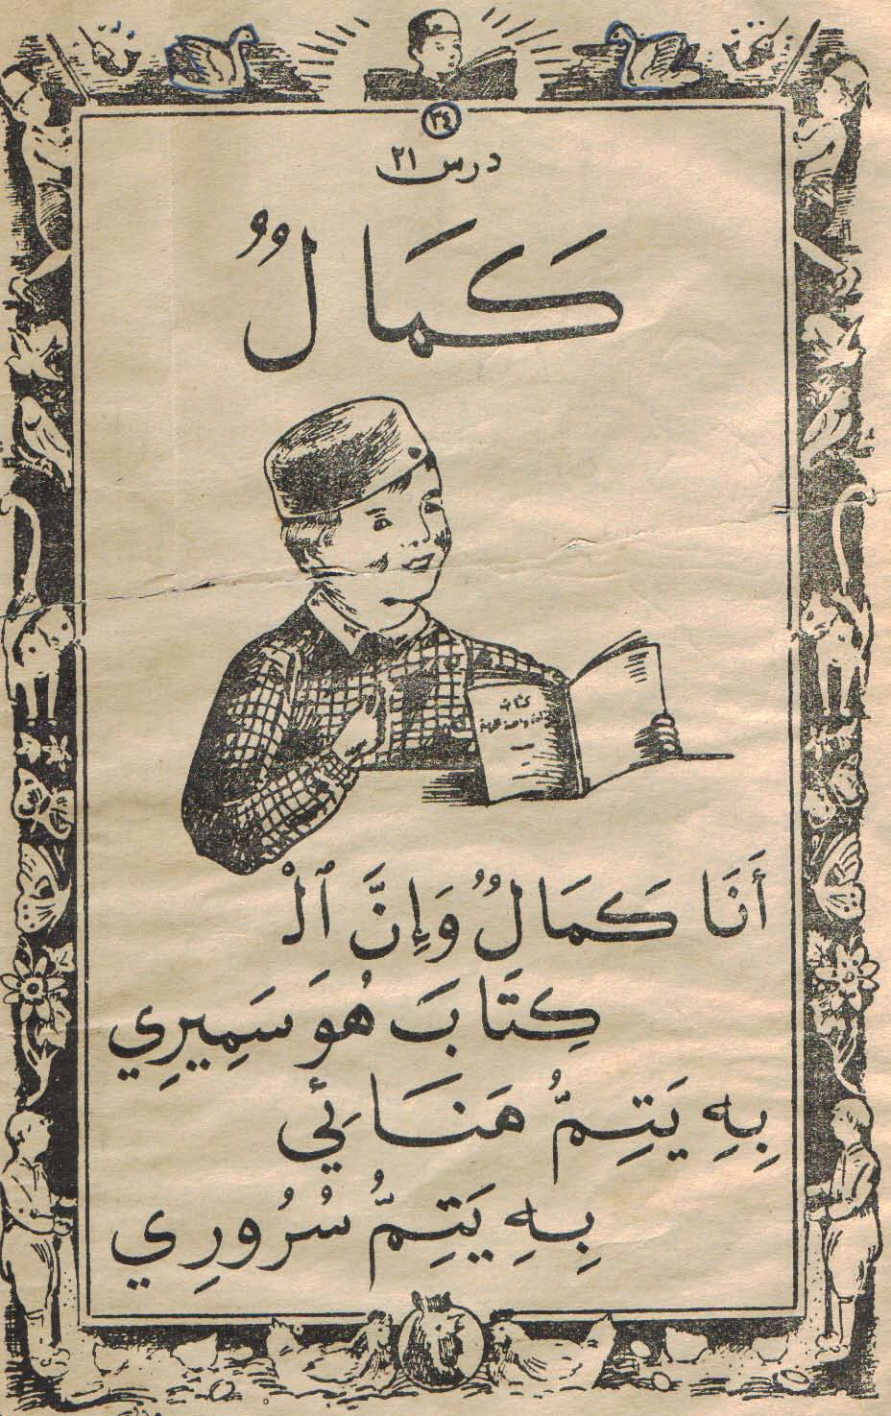 ٣٤
درس ٢١
كَمَالٌ
كتاب
أَنَا كَمَالٌ وَإِنَّ ٱلْ
كِتَابَ هُوَ سَمِيرِي
بِهِ يَتِمُّ هَنَائِي
بِهِ يَتِمُّ سُرُورِي